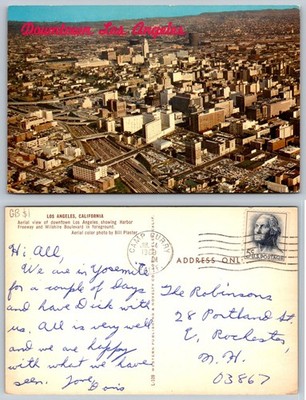 Downtown Los Angeles
GB $1
LOS ANGELES, CALIFORNIA
Aerial view of downtown Los Angeles, showing Harbor
Freeway and Wilshire Boulevard in foreground.
Aerial color photo by Bill Plaster
Hi All,
We are in Yosemite
for a couple of days
and have Dick with
us. All is very well
and we are happy
with what we have
seen. Love
Doris
CAMP CURRY
ADDRESS ONLY
The Robinsons
28 Portland St.
E. Rochester,
N.H.
03867